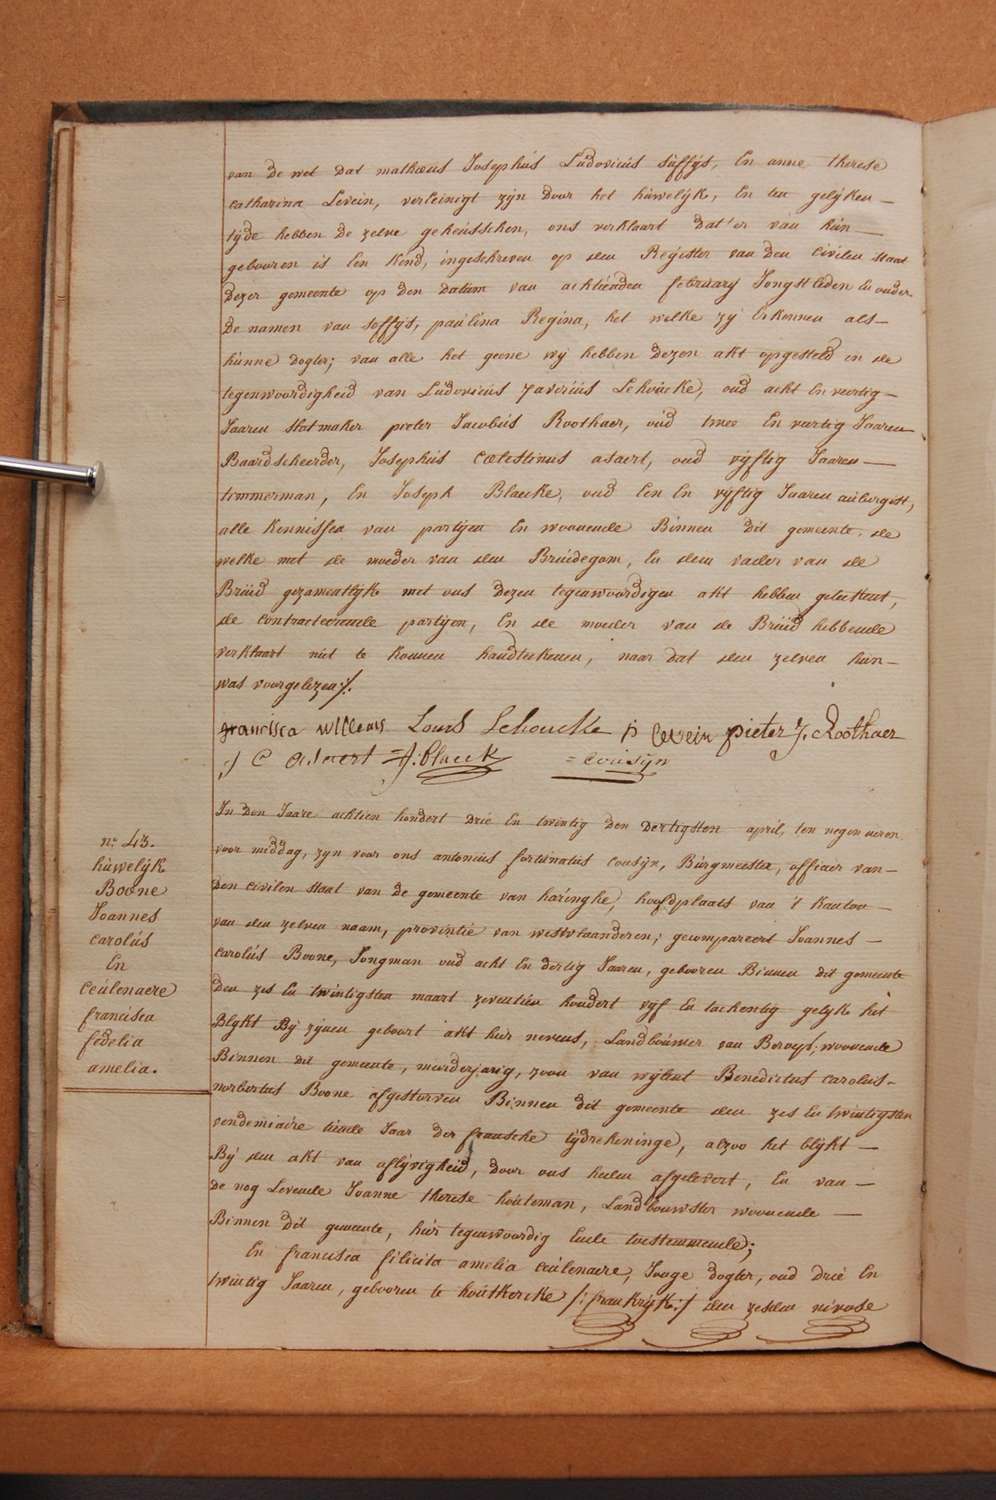 van de wet dat matheus Josephus Ludovicus Soffijs, En anne therese
Catharina Levein, vereinigt zijn door het huwelijk, En ten gelijken
tijde hebben de zelve geheusschen, ons verklaart dat er van hun
gebooren is Een Kend, ingeschreven op den Register van den Civilen Staat
dezer gemeente op den datum van achtienden february Jongstleden En onder
de namen van Soffijs, paulina Regina, het welke zij Erkennen als
hunne dogter; van alle het geene wij hebben dezen akt opgesteld in de
tegenwoordigheid van Ludovicus Xaverius Schoucke, oud acht En veertig
Jaaren Slotmaker pieter Jacobus Roothaer, oud twee En veertig Jaaren
Baardscheerder, Josephus Cælestinus asaert, oud vijftig Jaaren
timmerman, En Joseph Blaucke, oud Een En vijftig Jaaren aubergist,
alle Kennissen van partijen En woonende Binnen dit gemeente, de
welke met de moeder van den Bruidegom, En den vader van de
Bruid gezamentlijk met ons dezen tegenwoordigen akt hebben geteekent,
de contracteerende partijen, En de moeder van de Bruid hebbende
verklaart niet te konnen handteekenen, naar dat den zelven hun
was voorgelezen /.
francisca willems Louis Schoucke p Levein pieter J. Roothaer
J C Asaert J: Blauck Cousijn
In den Jaare achtien hondert drie En twintig den dertigsten april, ten negen uren
voor middag, zijn voor ons antonius fortunatus Cousijn, Burgmeester, officier van
den civilen staat van de gemeente van haringhe, hoofdplaats van 't Kanton
van den zelven naam, provintie van westvlaanderen; gecompareert Joannes
carolus Boone, Jongman oud acht En dertig Jaaren, gebooren Binnen dit gemeente
den zes En twintigsten maart zeventien hondert vijf En tachentig gelijk het
Blijkt Bij zijnen geboort akt hier nevens, Landbouwer van Beroep, woonende
Binnen dit gemeente, meerderjarig, zoon van wijlent Benedictus carolus
norbertus Boone afgestorven Binnen dit gemeente den zes En twintigsten
vendemiaire tiende Jaar der fransche tijdrekeninge, alzoo het blijkt
Bij den akt van aflijvigheid, door ons heden afgelevert, En van
de nog Levende Joanne therese houteman, Landbouwster woonende
Binnen dit gemeente, hier tegenwoordig Ende toestemmende;
En francisca felicita amelia Ceulenaere, Jonge dogter, oud drie En
twintig Jaaren, gebooren te houtkercke /: frankrijk :/ den zesden nivose
n.° 43.
huwelijk
Boone
Joannes
carolus
En
Ceulenaere
francisca
fedelia
amelia.